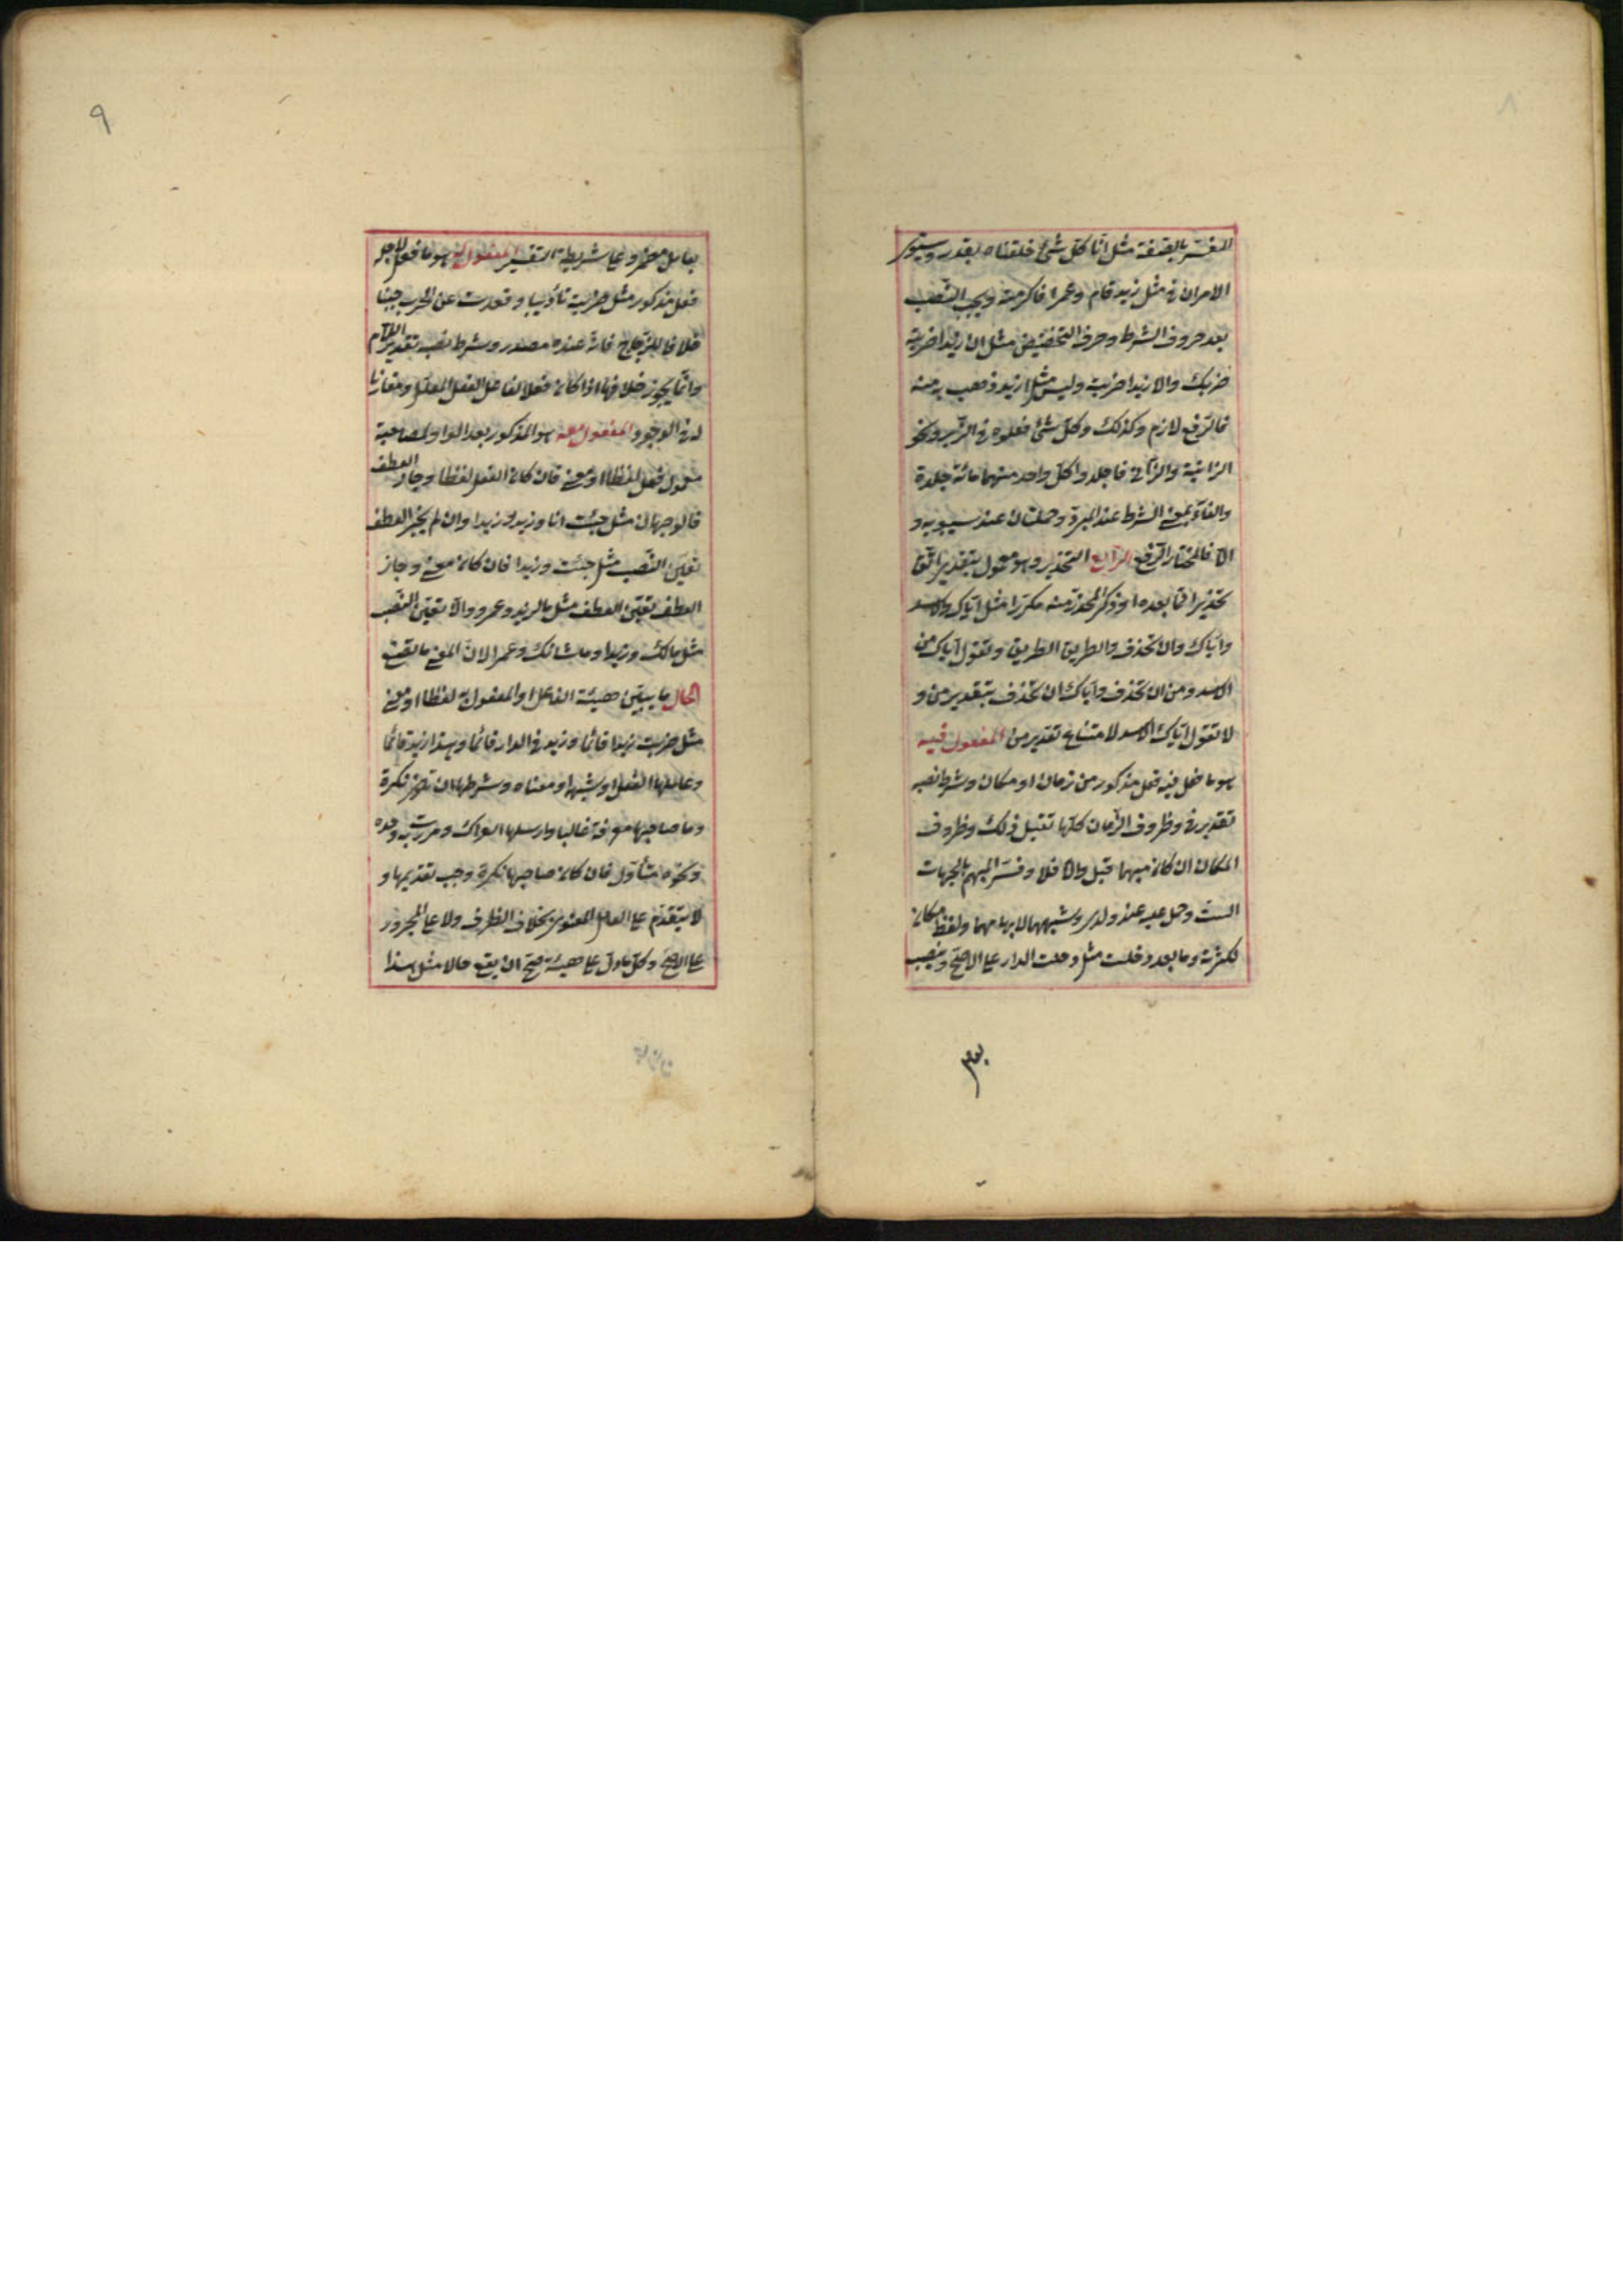 المفسر بالصفة مثل انا كل شئ خلقناه بقدر ويستوى
الامران فى مثل زيد قام وعمرا اكرمته ويجب النصب
بعد حروف الشرط وحرف التحضيض مثل ان زيدا ضربته
ضربك والا زيدا ضربته وليس مثل ازيد ذهب به منه
فالرفع لازم وكذلك وكل شئ فعلوه فى الزبر ونحو
الزانية والزانى فاجلدوا كل واحد منهما مائة جلدة
والفاء بمعنى الشرط عند المبرد وجملتان عند سيبويه و
الا فالمختار الرفع الرابع التحذير وهو معمول بتقدير اتق
تحذيرا مما بعده او ذكر المحذر منه مكررا مثل اياك والاسد
واياك وان تحذف والطريق الطريق وتقول اياك من
الاسد ومن ان تحذف واياك ان تحذف بتقدير من و
لا تقول اياك الاسد لامتناع تقدير من المفعول فيه
هو ما فعل فيه فعل مذكور من زمان او مكان وشرط نصبه
تقدير فى وظروف الزمان كلها تقبل ذلك وظروف
المكان ان كان مبهما قبل والا فلا وفسر المبهم بالجهات
الست وحمل عليه عند ولدى وشبههما لابهامهما ولفظ مكان
لكثرته وما بعد دخلت مثل دخلت الدار على الاصح وينصب
بعامل
بعامل مضمر وعلى شريطة التفسير المفعول له هو ما فعل لاجله
فعل مذكور مثل ضربته تأديبا وقعدت عن الحرب جبنا
خلافا للزجاج فانه عنده مصدر وشرط نصبه تقدير اللام
وانما يجوز حذفها اذا كان فعلا لفاعل الفعل المعلل ومقارنا
له فى الوجود المفعول معه هو المذكور بعد الواو لمصاحبة
معمول فعل لفظا او معنى فان كان الفعل لفظا وجاز العطف
فالوجهان مثل جئت انا وزيد وزيدا وان لم يجز العطف
تعين النصب مثل جئت وزيدا فان كان معنى وجاز
العطف تعين العطف مثل ما لزيد وعمرو والا تعين النصب
مثل مالك وزيدا وما شانك وعمرا لان المعنى ما تصنع
الحال ما يبين هيئة الفاعل او المفعول به لفظا او معنى
مثل ضربت زيدا قائما وزيد فى الدار قائما وهذا زيد قائما
وعاملها الفعل او شبهه او معناه وشرطها ان تكون نكرة
وصاحبها معرفة غالبا وارسلها العراك ومررت به وحده
ونحوه متأول فان كان صاحبها نكرة وجب تقديمها و
لا يتقدم على العامل المعنوى بخلاف الظرف ولا على المجرور
على الاصح وكل ما دل على هيئة صح ان يقع حالا مثل هذا